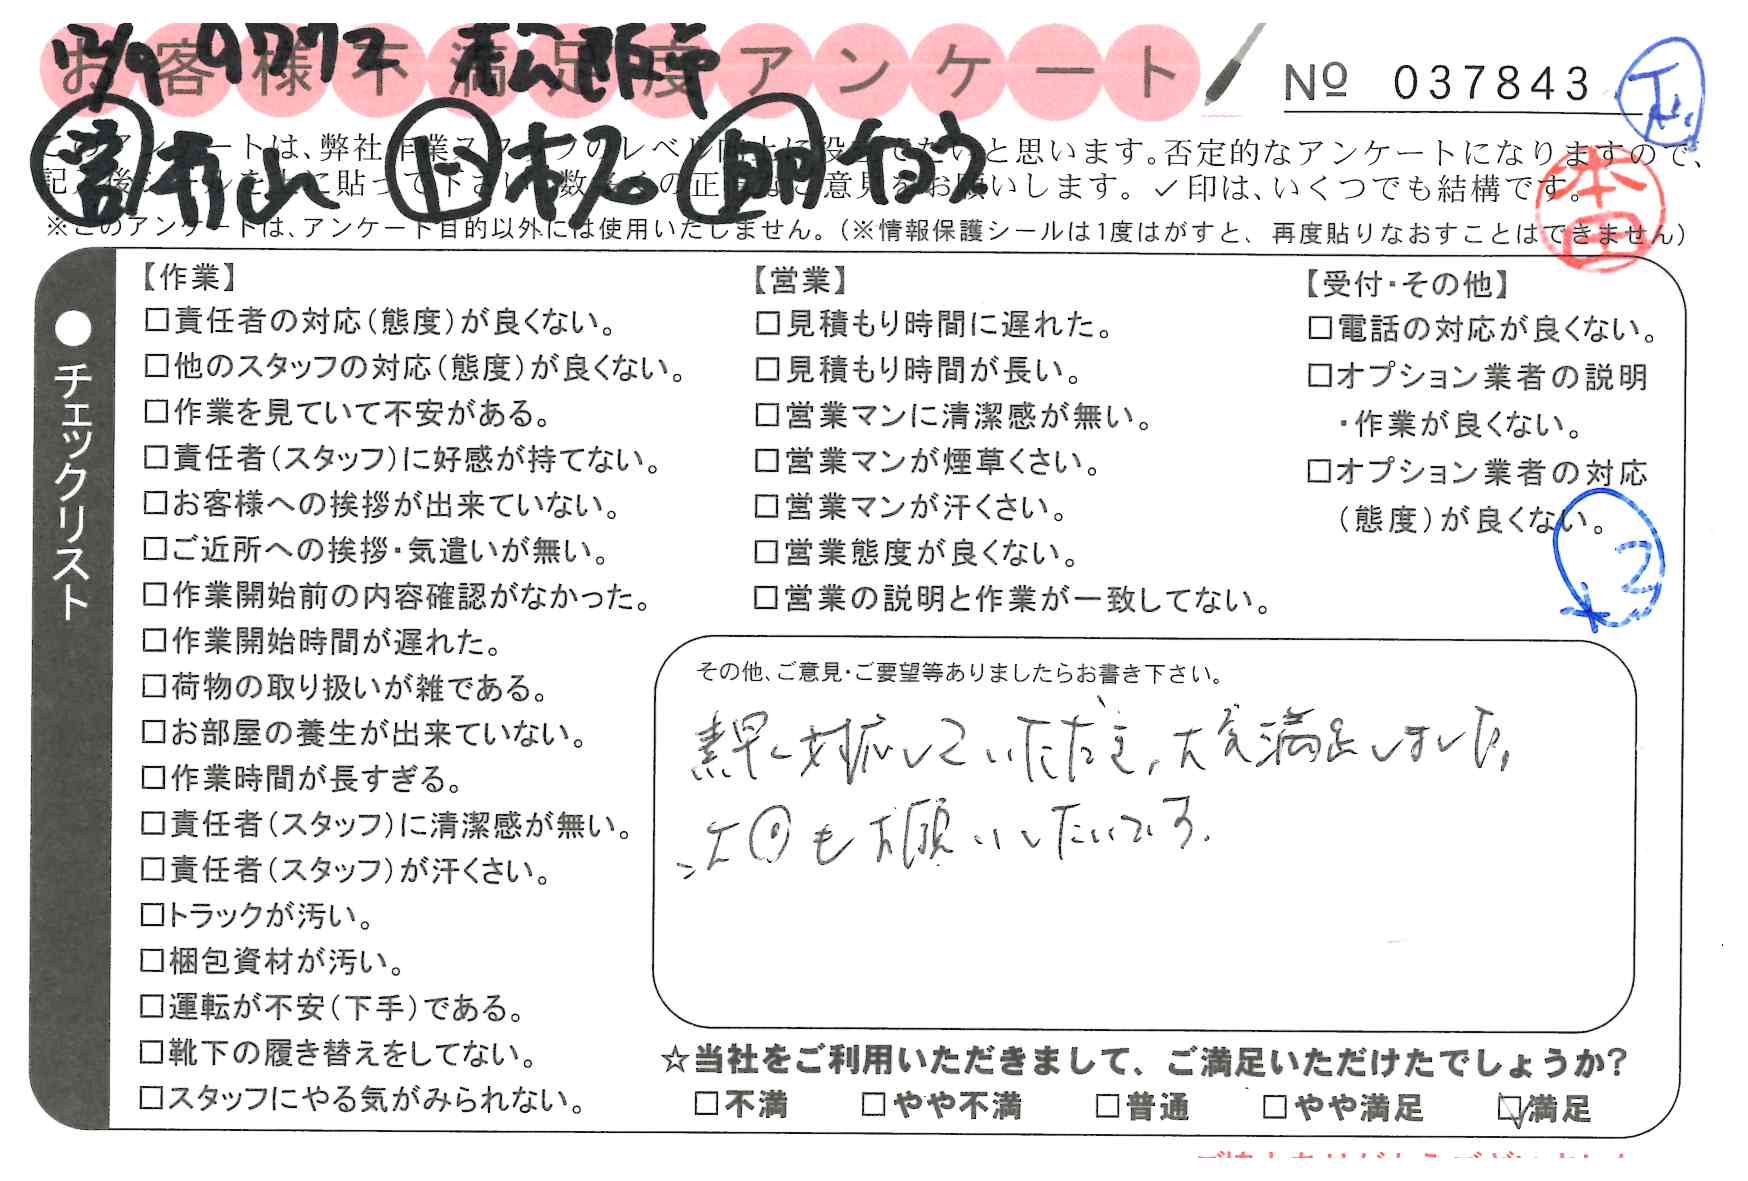 お客様不満足度アンケート
12/9 9772 松阪市
Nº 037843
このアンケートは、弊社作業スタッフのレベル向上に役立てたいと思います。否定的なアンケートになりますので、
記入後シールを上に貼って下さい。数多くの正直なご意見をお願いします。✓印は、いくつでも結構です。
※このアンケートは、アンケート目的以外には使用いたしません。(※情報保護シールは1度はがすと、再度貼りなおすことはできません)
本田
●チェックリスト
【作業】
□責任者の対応(態度)が良くない。
□他のスタッフの対応(態度)が良くない。
□作業を見ていて不安がある。
□責任者(スタッフ)に好感が持てない。
□お客様への挨拶が出来ていない。
□ご近所への挨拶・気遣いが無い。
□作業開始前の内容確認がなかった。
□作業開始時間が遅れた。
□荷物の取り扱いが雑である。
□お部屋の養生が出来ていない。
□作業時間が長すぎる。
□責任者(スタッフ)に清潔感が無い。
□責任者(スタッフ)が汗くさい。
□トラックが汚い。
□梱包資材が汚い。
□運転が不安(下手)である。
□靴下の履き替えをしてない。
□スタッフにやる気がみられない。
【営業】
□見積もり時間に遅れた。
□見積もり時間が長い。
□営業マンに清潔感が無い。
□営業マンが煙草くさい。
□営業マンが汗くさい。
□営業態度が良くない。
□営業の説明と作業が一致してない。
【受付・その他】
□電話の対応が良くない。
□オプション業者の説明
・作業が良くない。
□オプション業者の対応
(態度)が良くない。
その他、ご意見・ご要望等ありましたらお書き下さい。
素早く対応していただき、大変満足しました。
次回もお願いしたいです。
☆当社をご利用いただきまして、ご満足いただけたでしょうか?
□不満 □やや不満 □普通 □やや満足 ☑満足